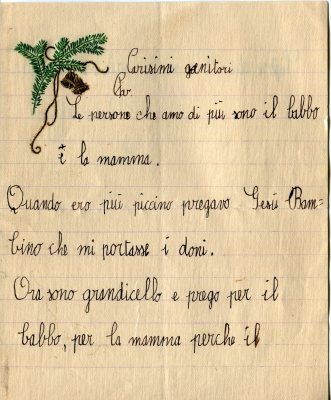 Carisimi genitori
Car
Le persone che amo di più sono il babbo
e la mamma.
Quando ero più piccino pregavo Gesù Bam=
bino che mi portasse i doni.
Ora sono grandicello e prego per il
babbo, per la mamma perche il